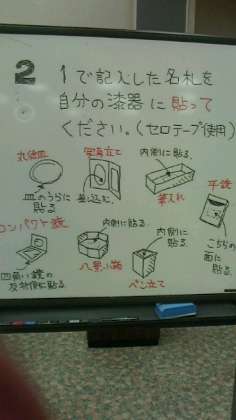 2 1で記入した名札を
自分の漆器に貼って
ください。(セロテープ使用)
丸銘皿
皿のうらに
貼る
写真立て
差し込む。
内側に貼る。
筆入れ
手鏡
こちらの
面に
貼る
コンパクト鏡
四角い鏡の
反対側に貼る
内側に貼る。
八角小箱
内側に
貼る。
ペン立て